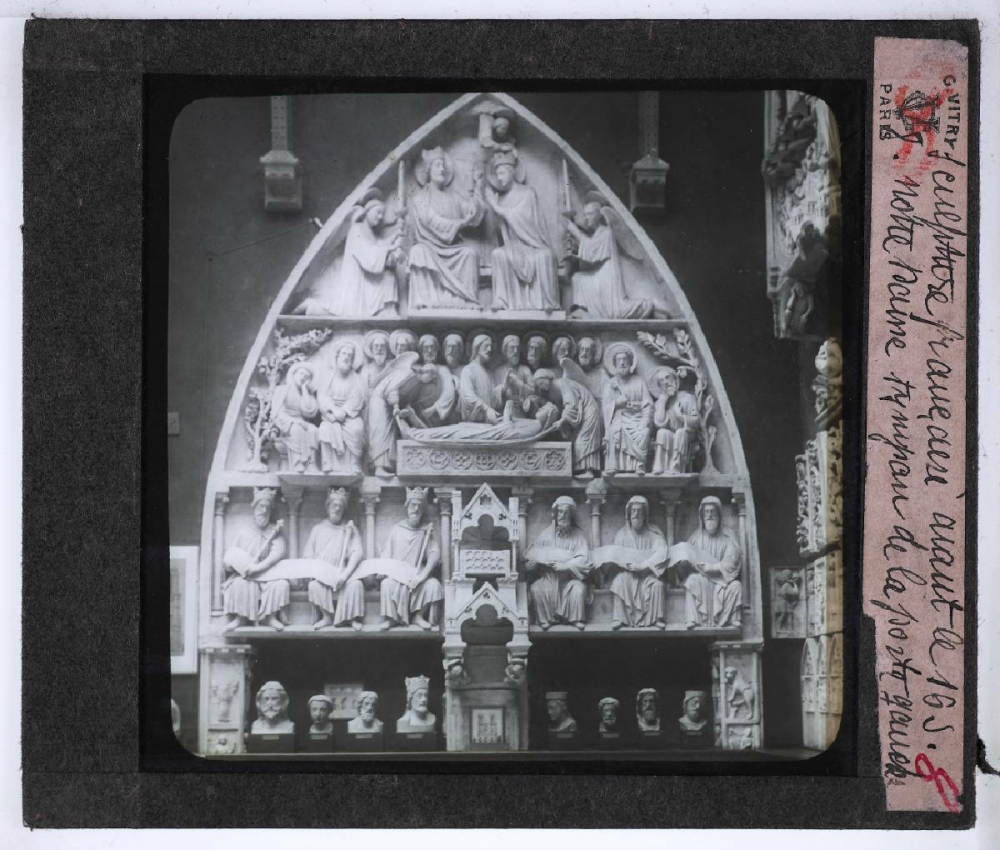 G. VITRY
PARIS
Sculpture française avant le 16 S.
Notre Dame tympan de la porte gauche